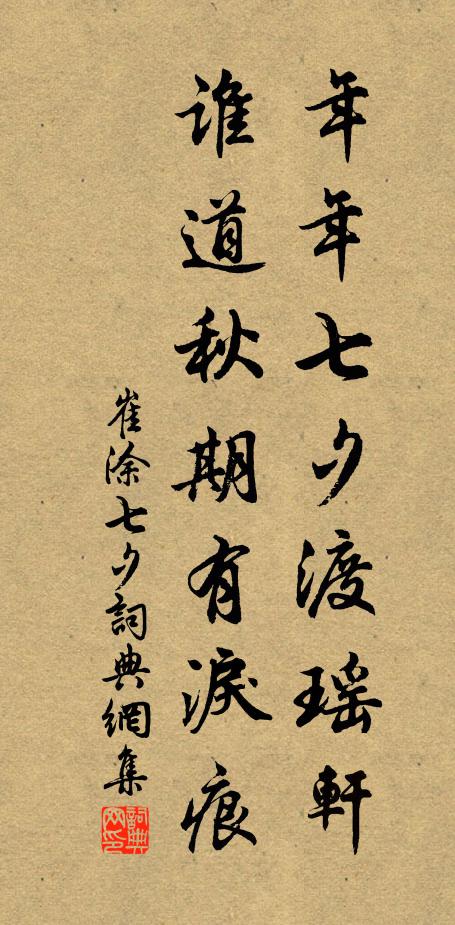 年年七夕渡瑶軒
誰道秋期有淚痕
崔涂七夕詞典網集
詞典網印